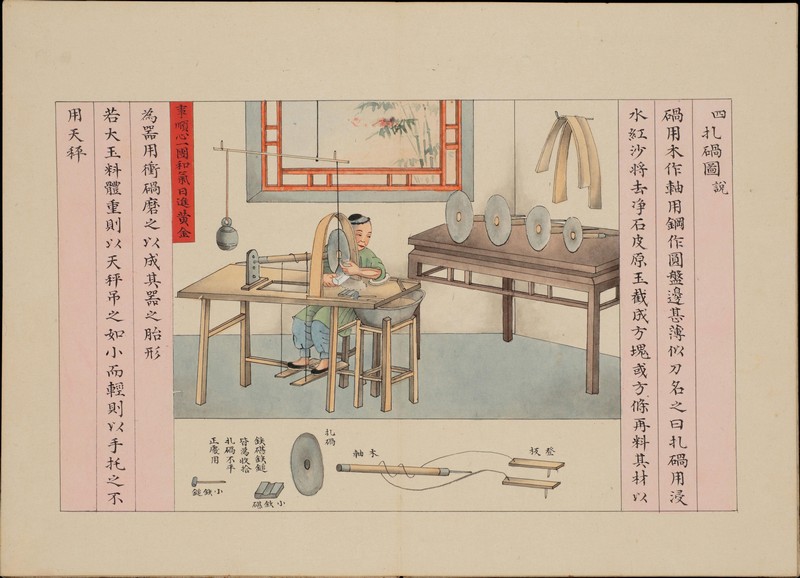 四扎碢圖說
碢用木作軸用鋼作圓盤邊甚薄似刀名之曰扎碢用浸
水紅沙將去净石皮原玉截成方塊或方條再料其材以
為器用衝碢磨之以成其器之胎形
若大玉料體重則以天秤吊之如小而輕則以手托之不
用天秤
事順心一團和氣日進黃金
扎碢
木軸
登板
鉄碢鉄鎚
收拾
扎碢不平
正處用
小鉄鎚
小鉄碢